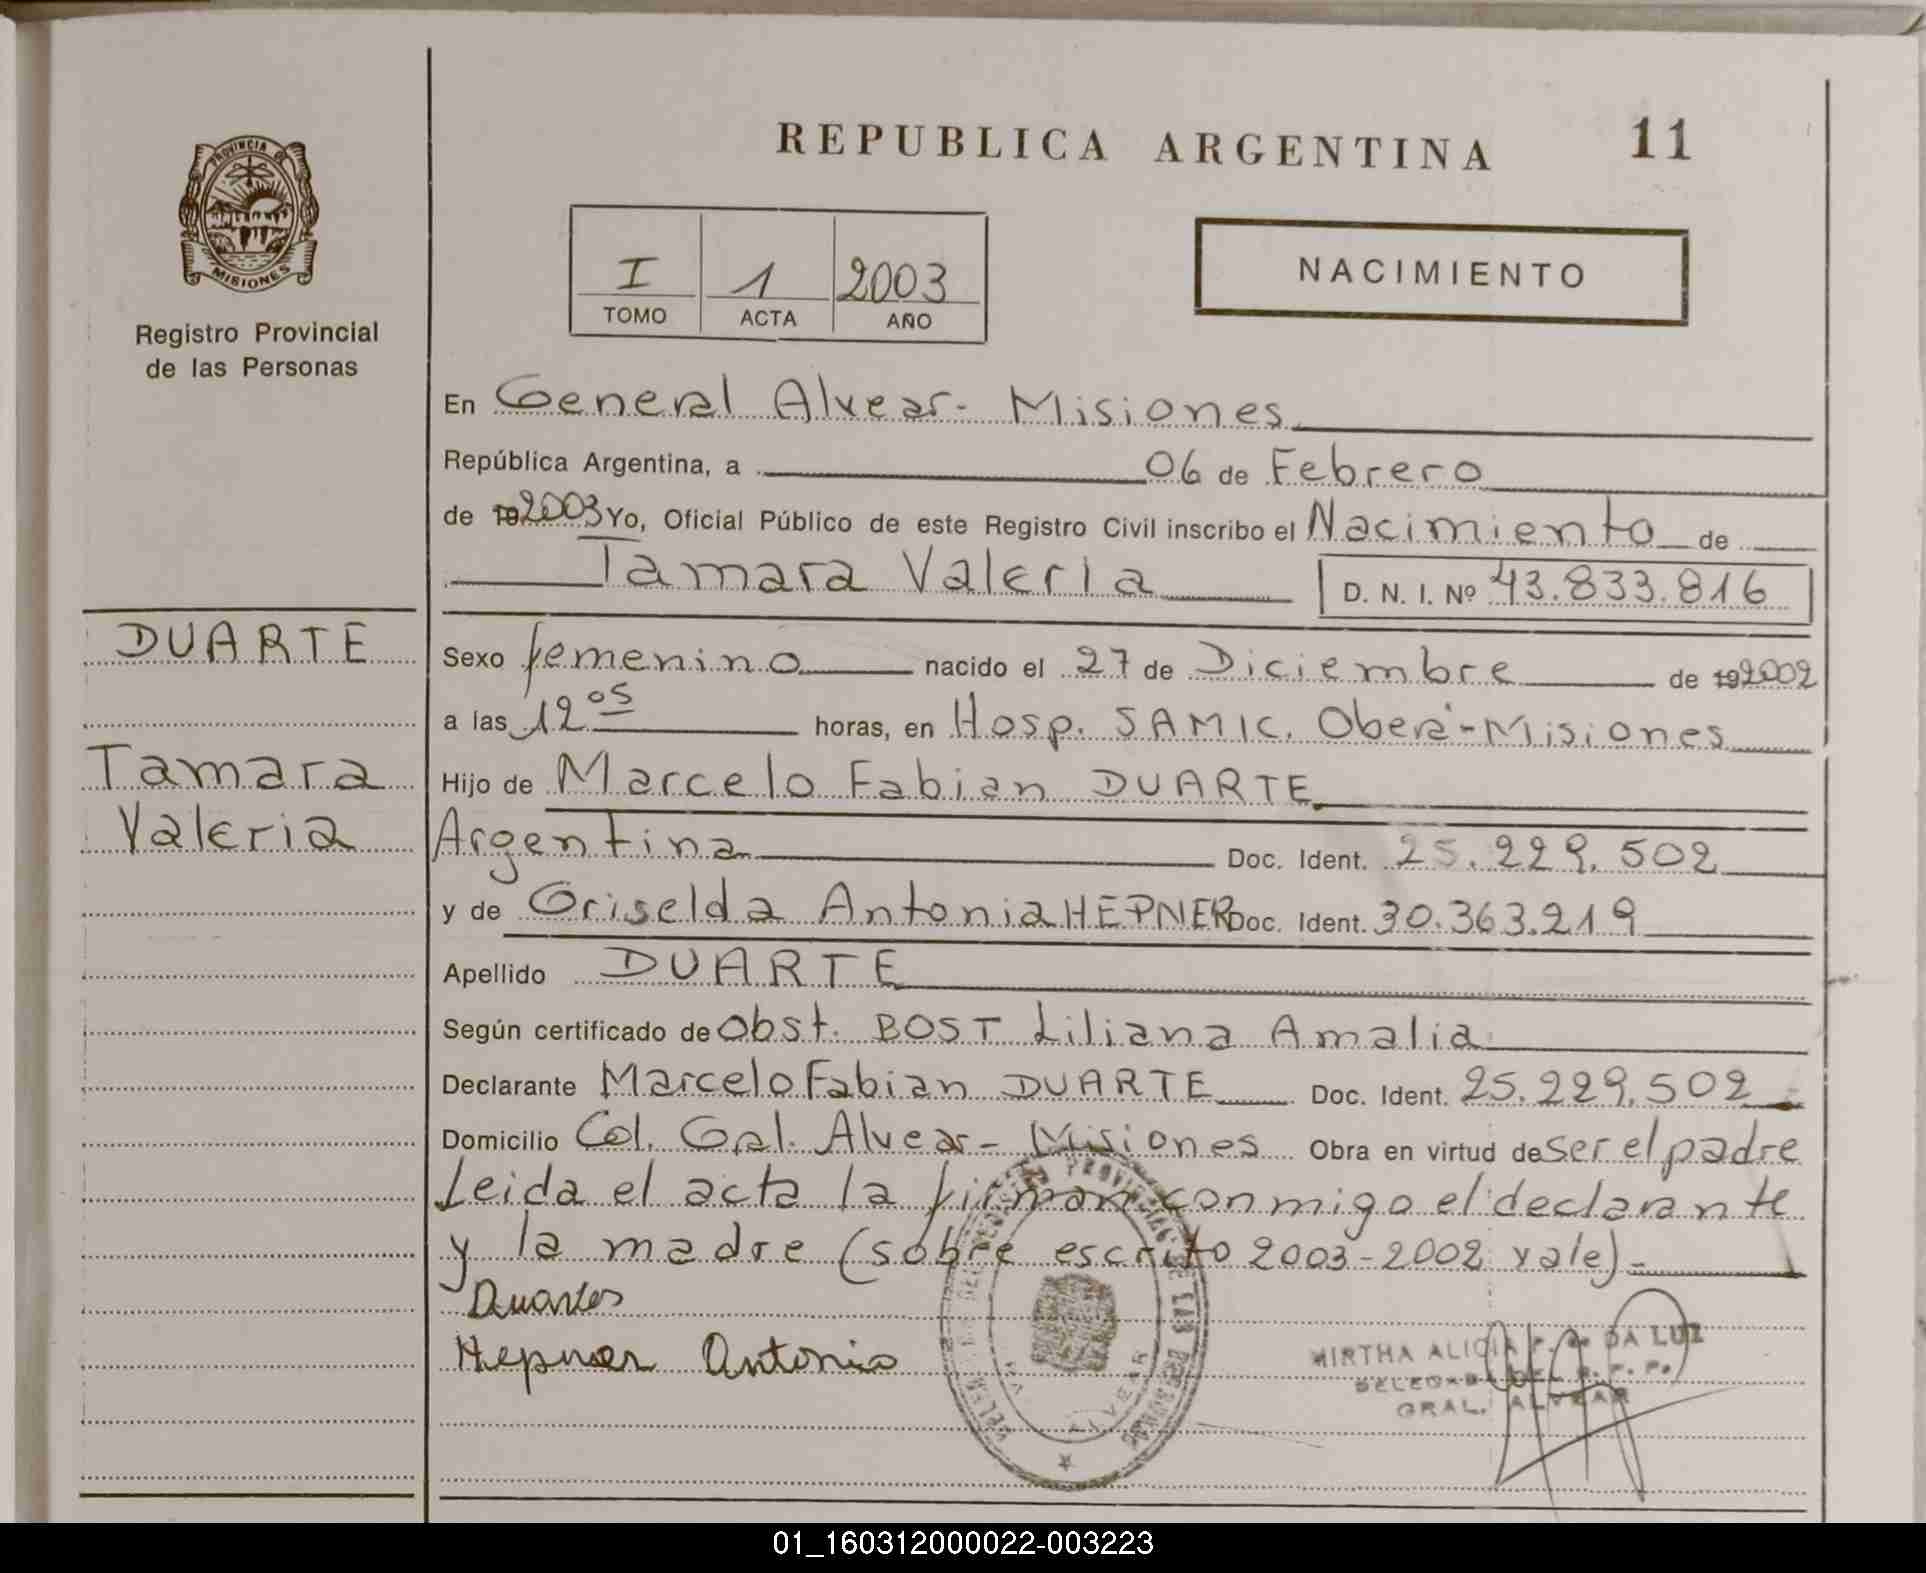 REPUBLICA ARGENTINA 11
PROVINCIA DE
MISIONES
Registro Provincial
de las Personas
I 1 2003
TOMO ACTA AÑO
NACIMIENTO
En General Alvear- Misiones
República Argentina, a 06 de Febrero
de 192003 Yo, Oficial Público de este Registro Civil inscribo el Nacimiento de
Tamara Valeria D. N. I. Nº 43.833.816
DUARTE
Tamara
Valeria
Sexo femenino nacido el 27 de Diciembre de 192002
a las 12 05 horas, en Hosp. SAMIC. Oberá-Misiones
Hijo de Marcelo Fabian DUARTE
Argentina Doc. Ident. 25.229.502
y de Griselda Antonia HEPNER Doc. Ident. 30.363.219
Apellido DUARTE
Según certificado de Obst. BOST Liliana Amalia
Declarante Marcelo Fabian DUARTE Doc. Ident. 25.229.502
Domicilio Col. Gral. Alvear- Misiones Obra en virtud de ser el padre
Leida el acta la firman conmigo el declarante
y la madre (sobre escrito 2003-2002 vale)-
Hepner Antonia
MIRTHA ALICIA DA LUZ
GRAL. ALVEAR
01_160312000022-003223